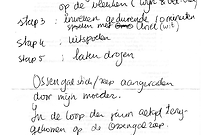 op de vlekken (wijn & bad...
stap 3 : inweken gedurende 10 minuten
spoelen met Ariel (wit)
stap 4 : uitspoelen
stap 5 : laten drogen
Ossengalstuk/zeep aangeraden
door mijn moeder.
↳
In de loop der jaren altijd terug-
gekomen op de Ossengalzeep.